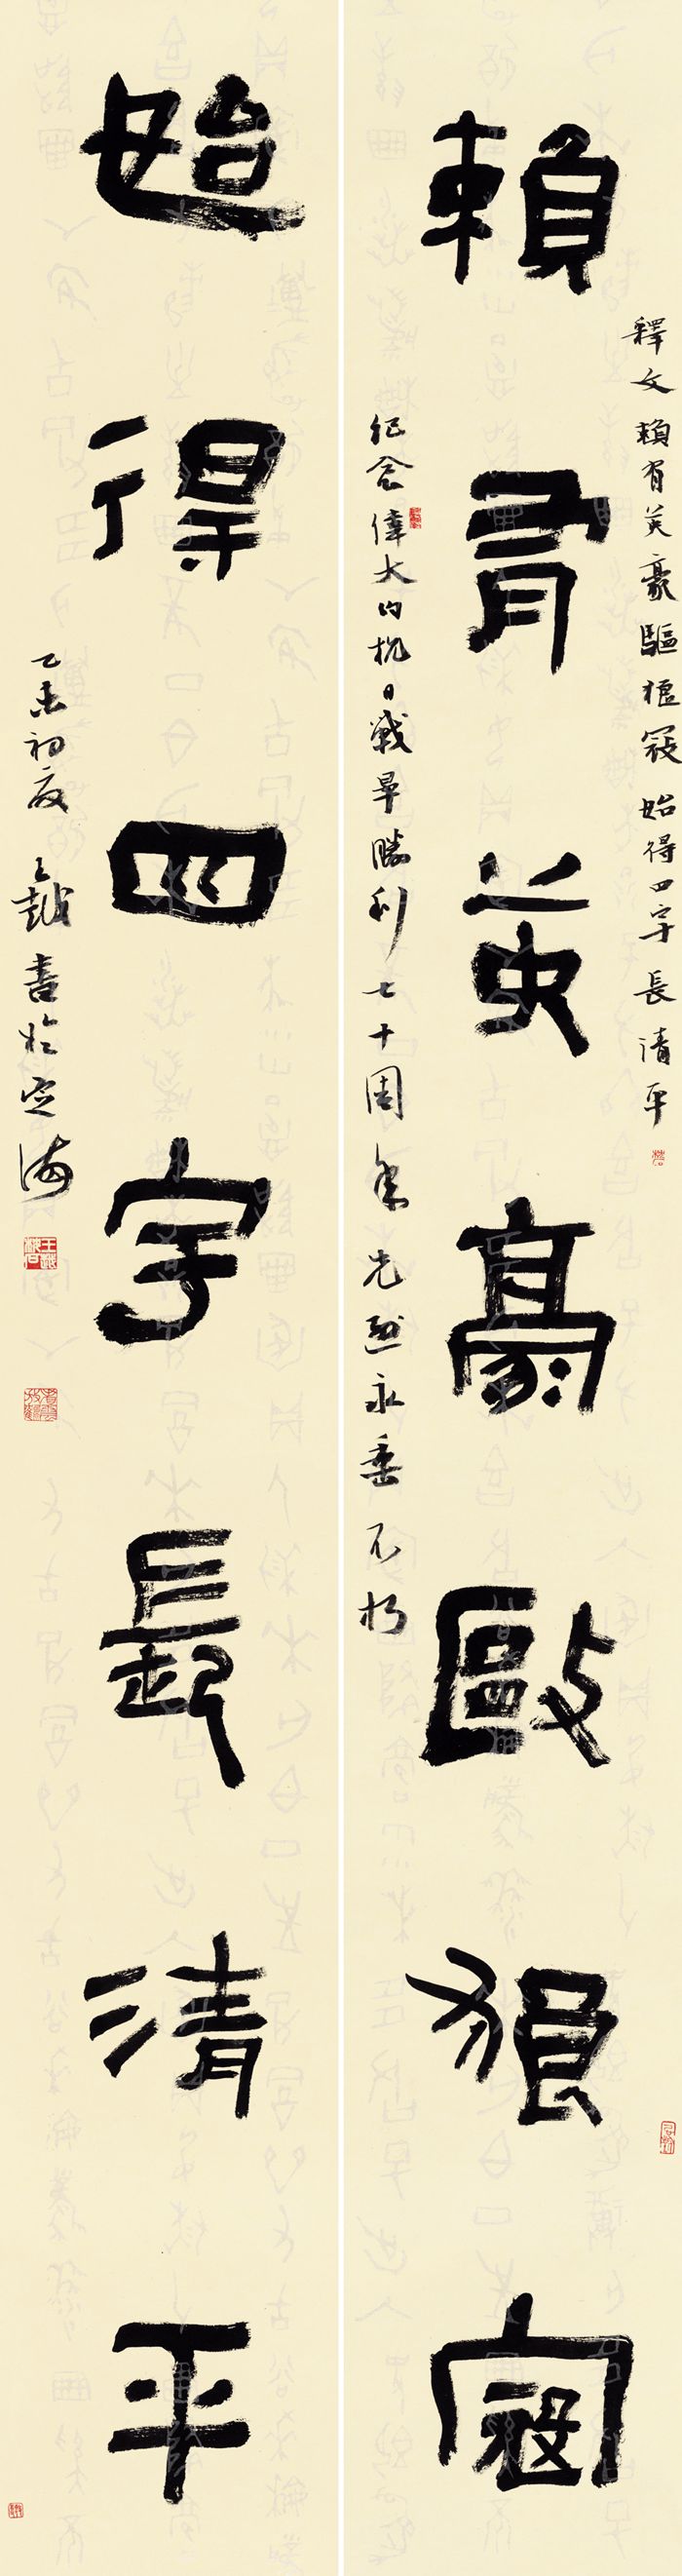 釋文 賴有英豪驅狼寇 始得四宇長清平
賴有英豪敺狼寇
紀念偉大的抗日戰爭勝利七十周年先烈永垂不朽
始得四宇長清平
乙未初夏 王越書於定海